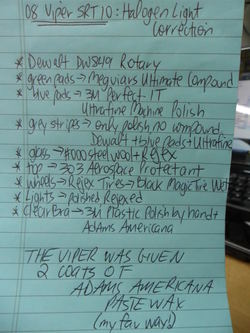 08 Viper SRT 10: Halogen Light
Correction
* Dewalt DW849 Rotary
* green pads → Meguiars Ultimate Compound
* blue pads → 3M Perfect-IT
Ultrafine Machine Polish
* grey stripes → only polish no compound
Dewalt + blue pads + Ultrafine
* glass → #0000 steel wool + Rejex
* top → 303 Aerospace Protectant
* Wheels → Rejex Tires → Black Magic Tire Wet
* Lights → Polished Rejexed
* Clear Bra → 3M Plastic Polish by hand +
Adams Americana
THE VIPER WAS GIVEN
2 COATS OF
ADAMS AMERICANA
PASTE WAX
(my fav wax!)